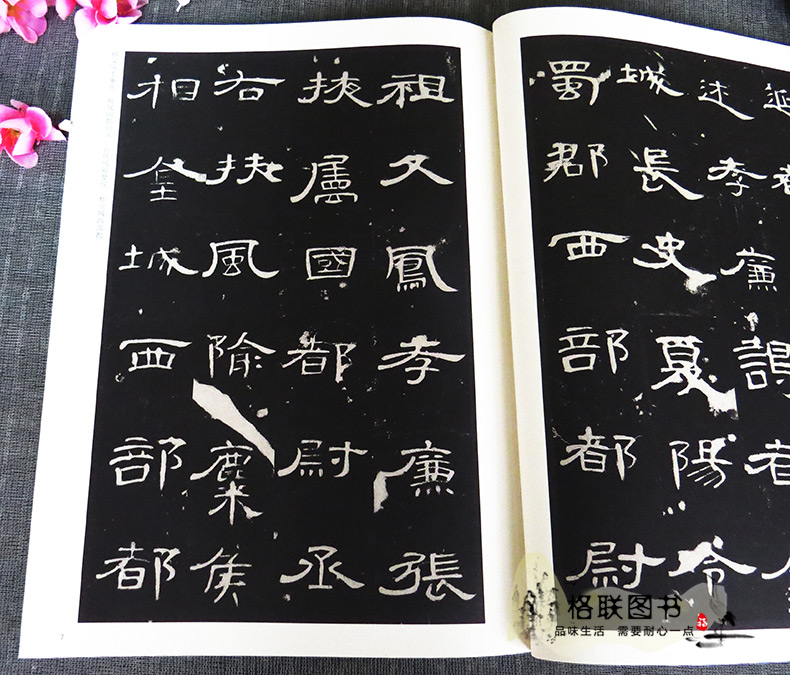 述孝廉謁者
城長史夏陽令
蜀郡西部都尉
祖父鳳孝廉張
掖屬國都尉丞
右扶風隃麋侯
相金城西部都
7
格联图书
品味生活 需要耐心一点